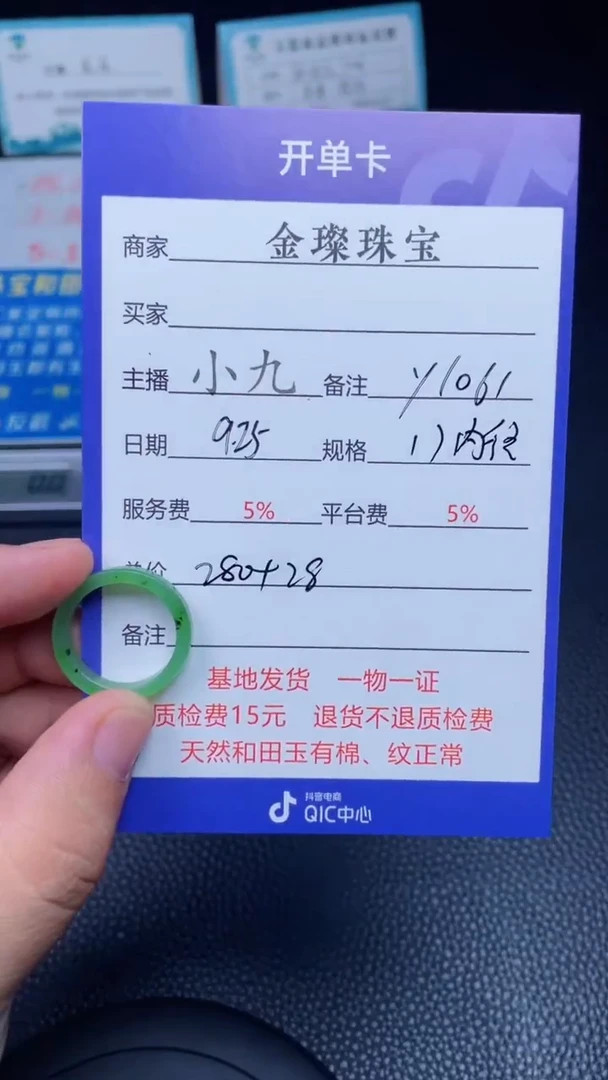 开单卡
商家 金璨珠宝
买家
主播 小九 备注 Y1061
日期 9.25 规格 17内径
服务费 5% 平台费 5%
单价 280+28
备注
基地发货 一物一证
质检费15元 退货不退质检费
天然和田玉有棉、纹正常
抖音电商
QIC中心
0.0